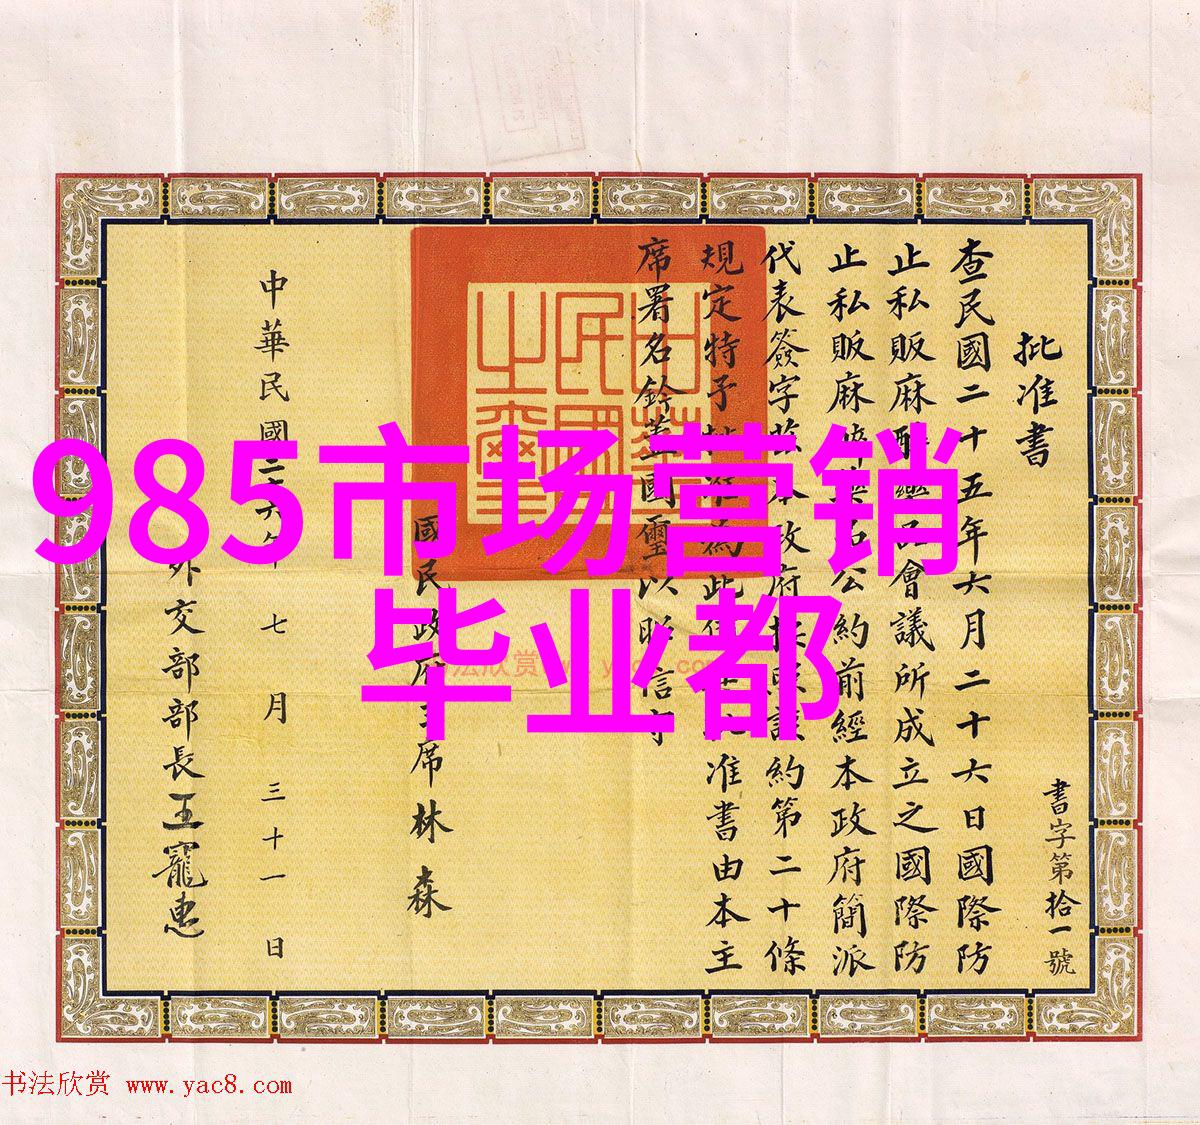 書字第拾一號
批准書
查民國二十五年六月二十六日國際防
止私販麻醉藥品會議所成立之國際防
止私販麻醉藥品公約前經本政府簡派
代表簽字茲本政府照該約第二十條
規定特予批准為此准書由本主
席署名鈐蓋國璽以昭信守
中華民國之璽
國民政府主席林森
中華民國二十六年七月三十一日
外交部部長王寵惠
985市场营销
毕业都
书法欣赏 www.yac8.com